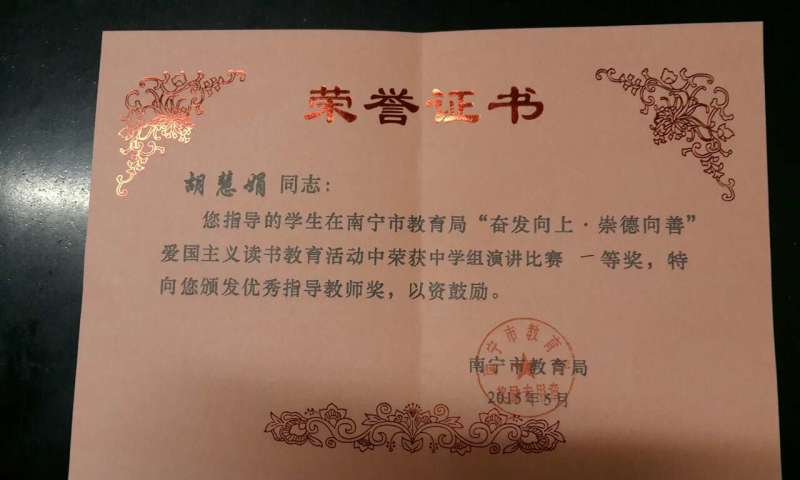 荣誉证书
胡慧娟 同志：
您指导的学生在南宁市教育局“奋发向上·崇德向善”
爱国主义读书教育活动中荣获中学组演讲比赛 一等奖，特
向您颁发优秀指导教师奖，以资鼓励。
南宁市教育局
2015年5月